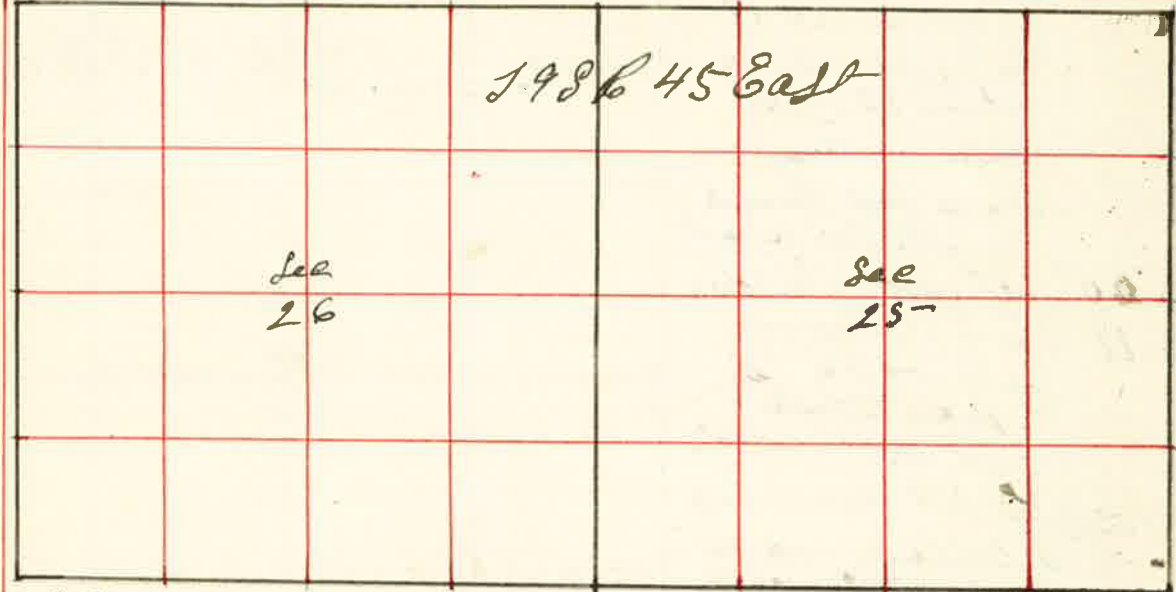 T9SR 45 East
Sec
26
Sec
25